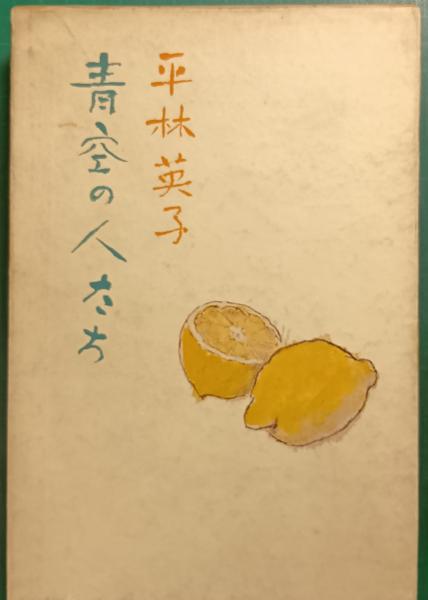 平林英子
青空の人たち